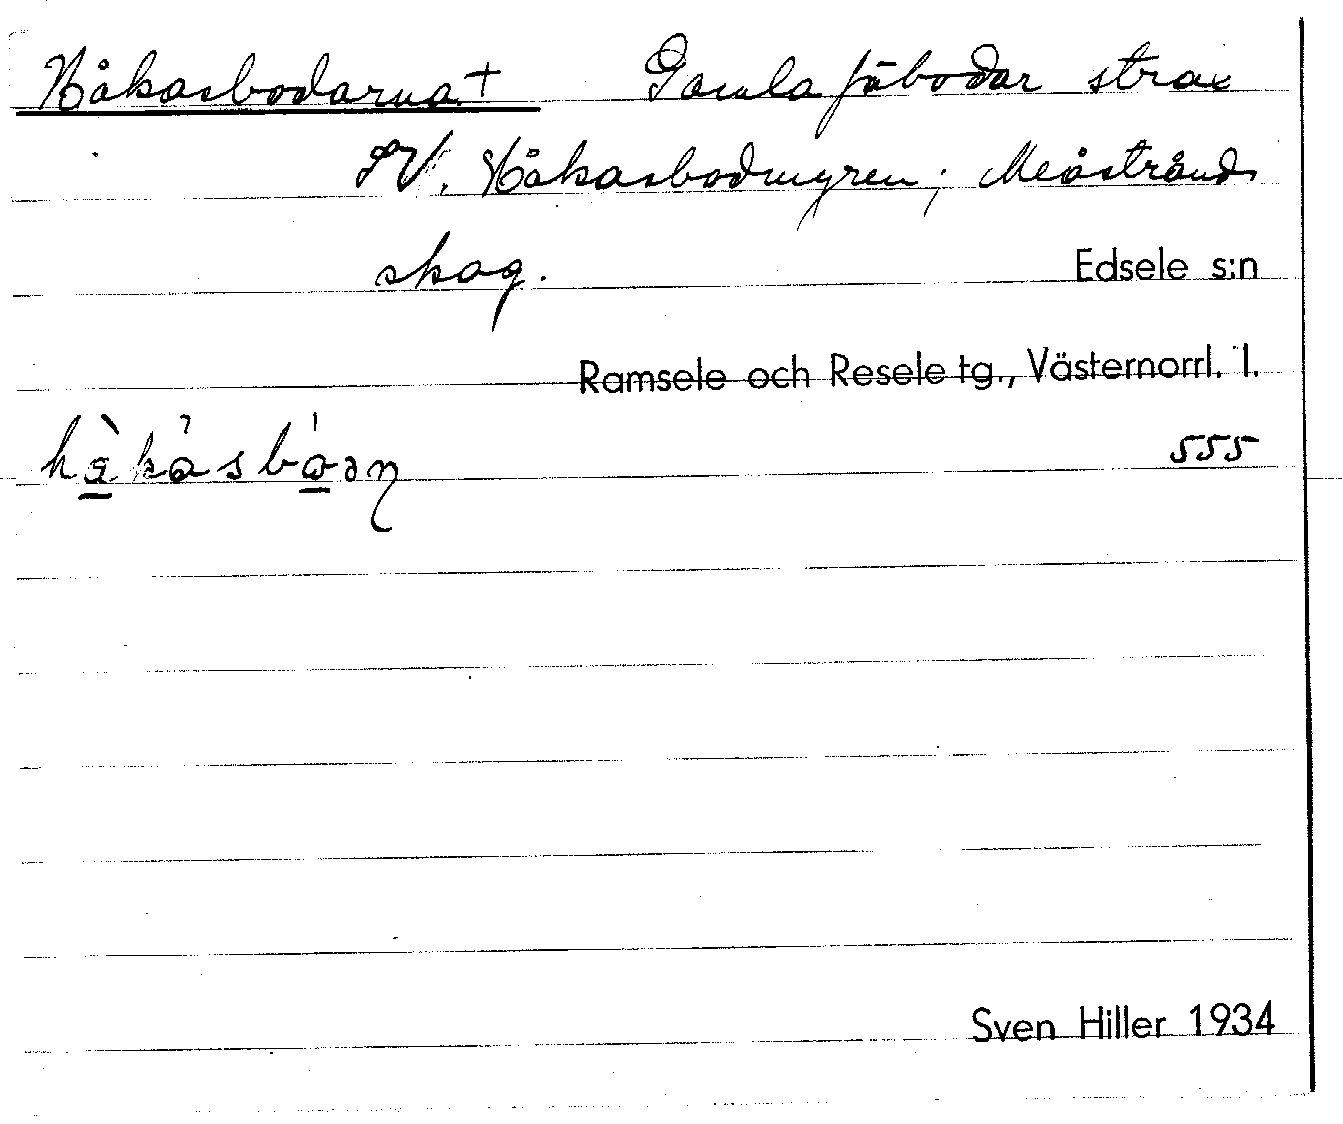 Håkasbodarna + Gamla fäbodar strax
SV. Håkasbodmyren; Meåstrands
skog.
Edsele s:n
Ramsele och Resele tg., Västernorrl. l.
555
Sven Hiller 1934